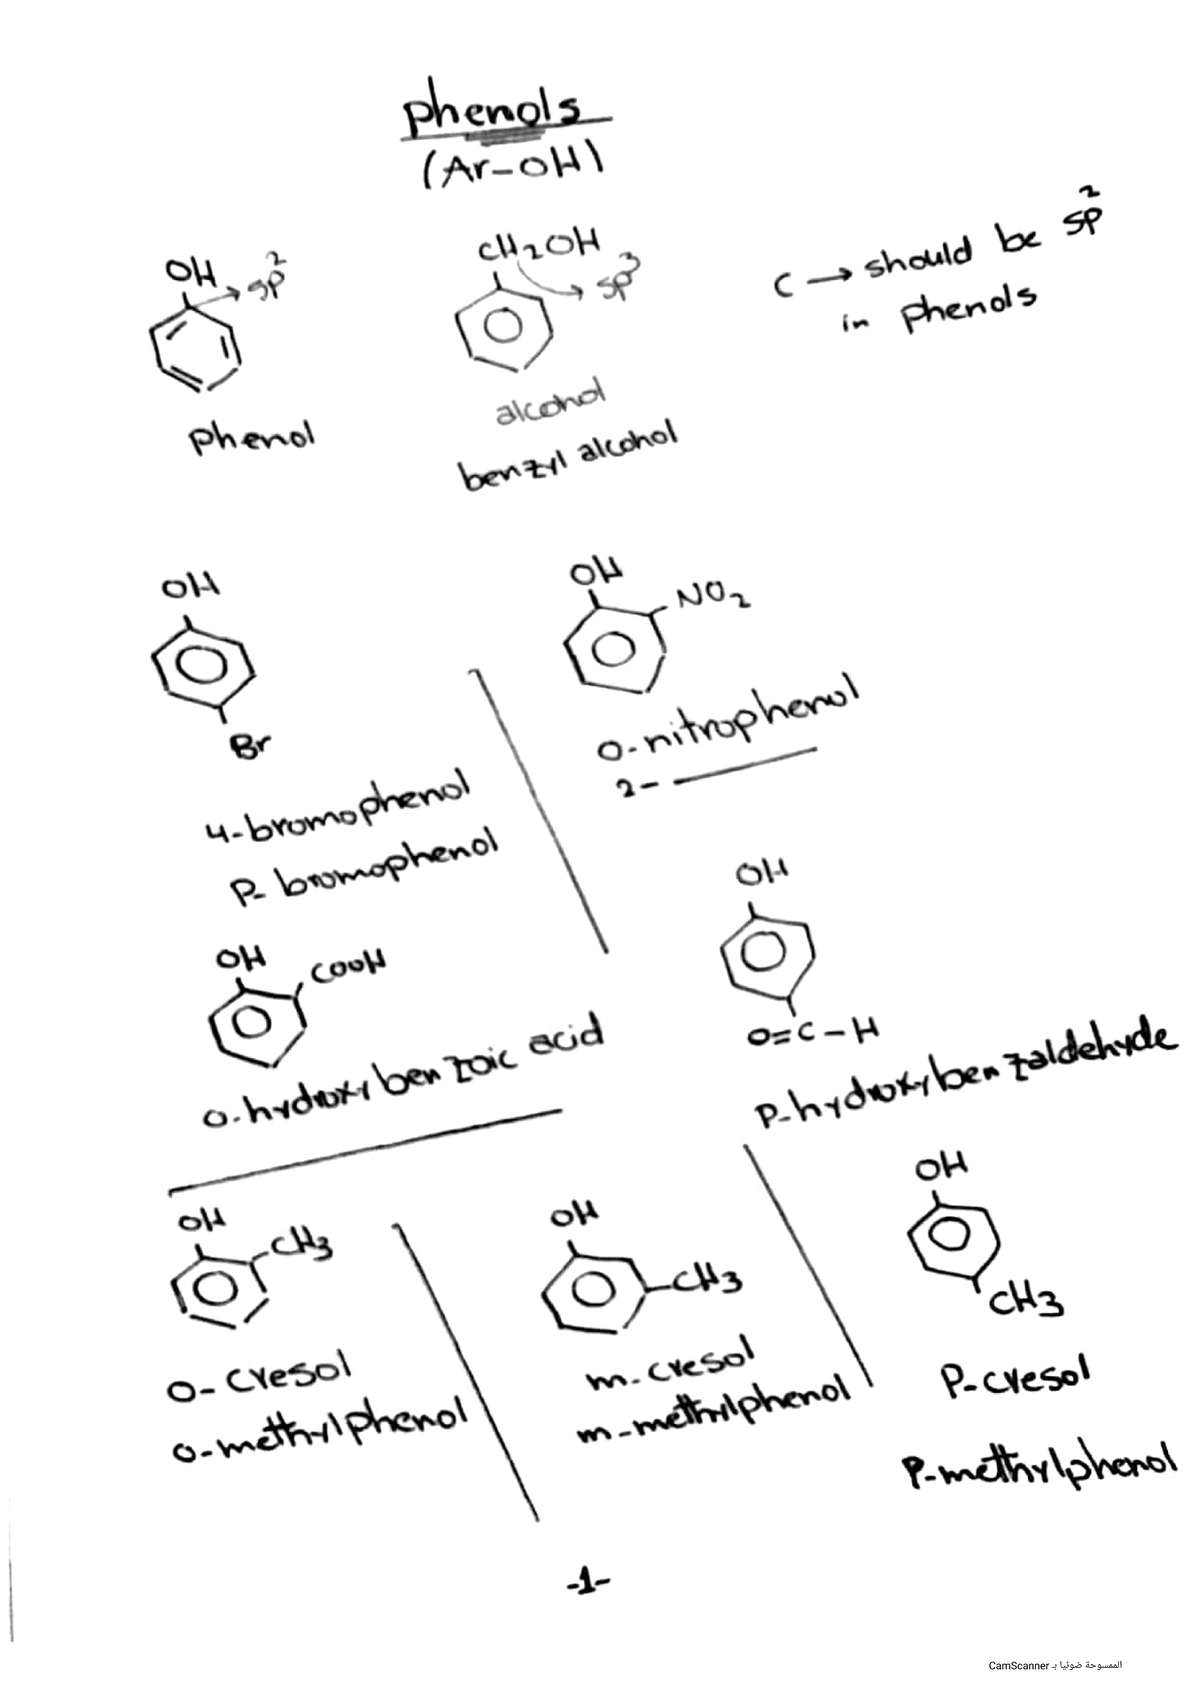 phenols
(Ar-OH)
OH
sp2
phenol
CH2OH
sp3
alcohol
benzyl alcohol
C → should be sp2
in phenols
OH
Br
4-bromophenol
P-bromophenol
OH
NO2
o-nitrophenol
2-
OH
COOH
o-hydroxybenzoic acid
OH
O=C-H
P-hydroxybenzaldehyde
OH
CH3
o-cresol
o-methylphenol
OH
CH3
m-cresol
m-methylphenol
OH
CH3
P-cresol
P-methylphenol
-1-
الممسوحة ضوئيا بـ CamScanner